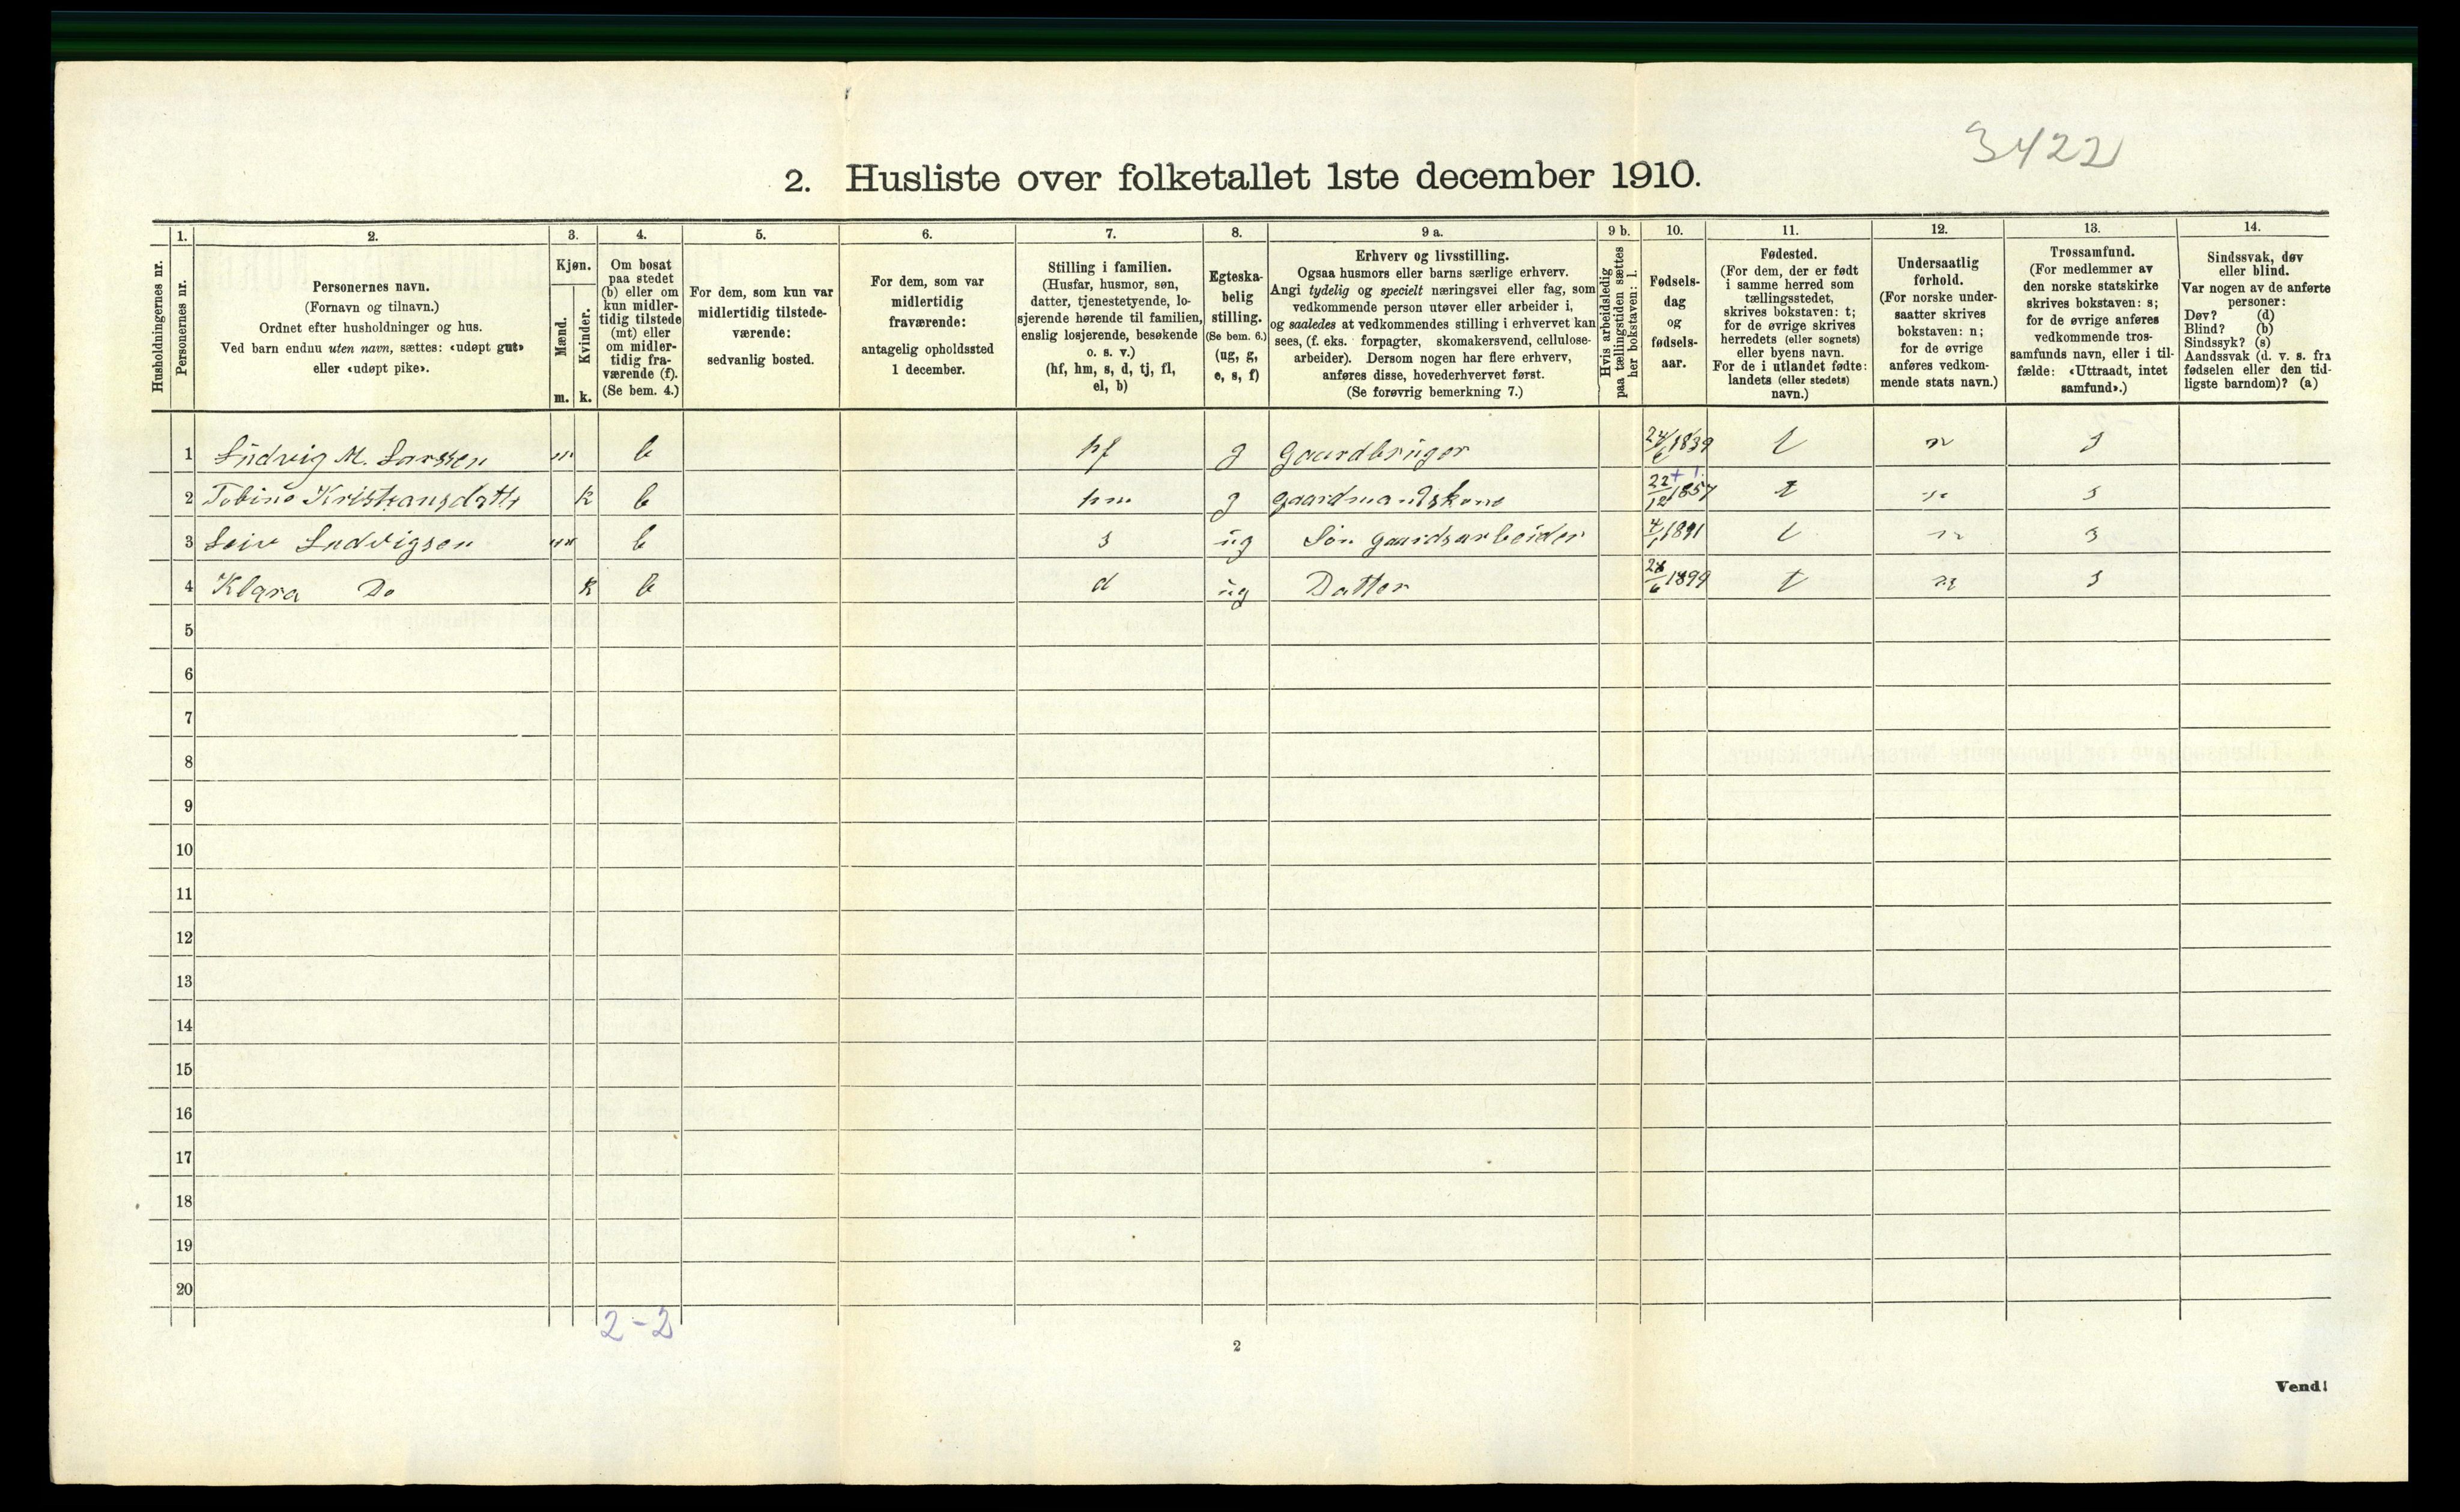 3422
2. Husliste over folketallet 1ste december 1910.
Husholdningernes nr.
1.
Personernes nr.
2.
Personernes navn.
(Fornavn og tilnavn.)
Ordnet efter husholdninger og hus.
Ved barn endnu uten navn, sættes: «udøpt gut»
eller «udøpt pike».
3.
Kjøn.
Mænd.
Kvinder.
m. k.
4.
Om bosat
paa stedet
(b) eller om
kun midler-
tidig tilstede
(mt) eller
om midler-
tidig fra-
værende (f).
(Se bem. 4.)
5.
For dem, som kun var
midlertidig tilstede-
værende:
sedvanlig bosted.
6.
For dem, som var
midlertidig
fraværende:
antagelig opholdssted
1 december.
7.
Stilling i familien.
(Husfar, husmor, søn,
datter, tjenestetyende, lo-
sjerende hørende til familien,
enslig losjerende, besøkende
o. s. v.)
(hf, hm, s, d, tj, fl,
el, b)
8.
Egteska-
belig
stilling.
(Se bem. 6.)
(ug, g,
e, s, f)
9 a.
Erhverv og livsstilling.
Ogsaa husmors eller barns særlige erhverv.
Angi tydelig og specielt næringsvei eller fag, som
vedkommende person utøver eller arbeider i,
og saaledes at vedkommendes stilling i erhvervet kan
sees, (f. eks. forpagter, skomakersvend, cellulose-
arbeider). Dersom nogen har flere erhverv,
anføres disse, hovederhvervet først.
(Se forøvrig bemerkning 7.)
9 b.
Hvis arbeidsledig
paa tællingstiden sættes
her bokstaven: l.
10.
Fødsels-
dag
og
fødsels-
aar.
11.
Fødested.
(For dem, der er født
i samme herred som
tællingsstedet,
skrives bokstaven: t;
for de øvrige skrives
herredets (eller sognets)
eller byens navn.
For de i utlandet fødte:
landets (eller stedets)
navn.)
12.
Undersaatlig
forhold.
(For norske under-
saatter skrives
bokstaven: n;
for de øvrige
anføres vedkom-
mende stats navn.)
13.
Trossamfund.
(For medlemmer av
den norske statskirke
skrives bokstaven: s;
for de øvrige anføres
vedkommende tros-
samfunds navn, eller i til-
fælde: «Uttraadt, intet
samfund».)
14.
Sindssvak, døv
eller blind.
Var nogen av de anførte
personer:
Døv? (d)
Blind? (b)
Sindssyk? (s)
Aandssvak (d. v. s. fra
fødselen eller den tid-
ligste barndom)? (a)
1 Ludvig M. Larssen m b hf g Gaardbruger 24/6 1839 t n s
2 Tobine Kristiansdattr k b hm g gaardmandskone 22/12 1857 t n s
3 Leiv Ludvigsen m b s ug Søn gaardsarbeider 4/1 1891 t n s
4 Klara Do k b d ug Datter 6 1899 t n s
5
6
7
8
9
10
11
12
13
14
15
16
17
18
19
20
2-2
2
Vend!